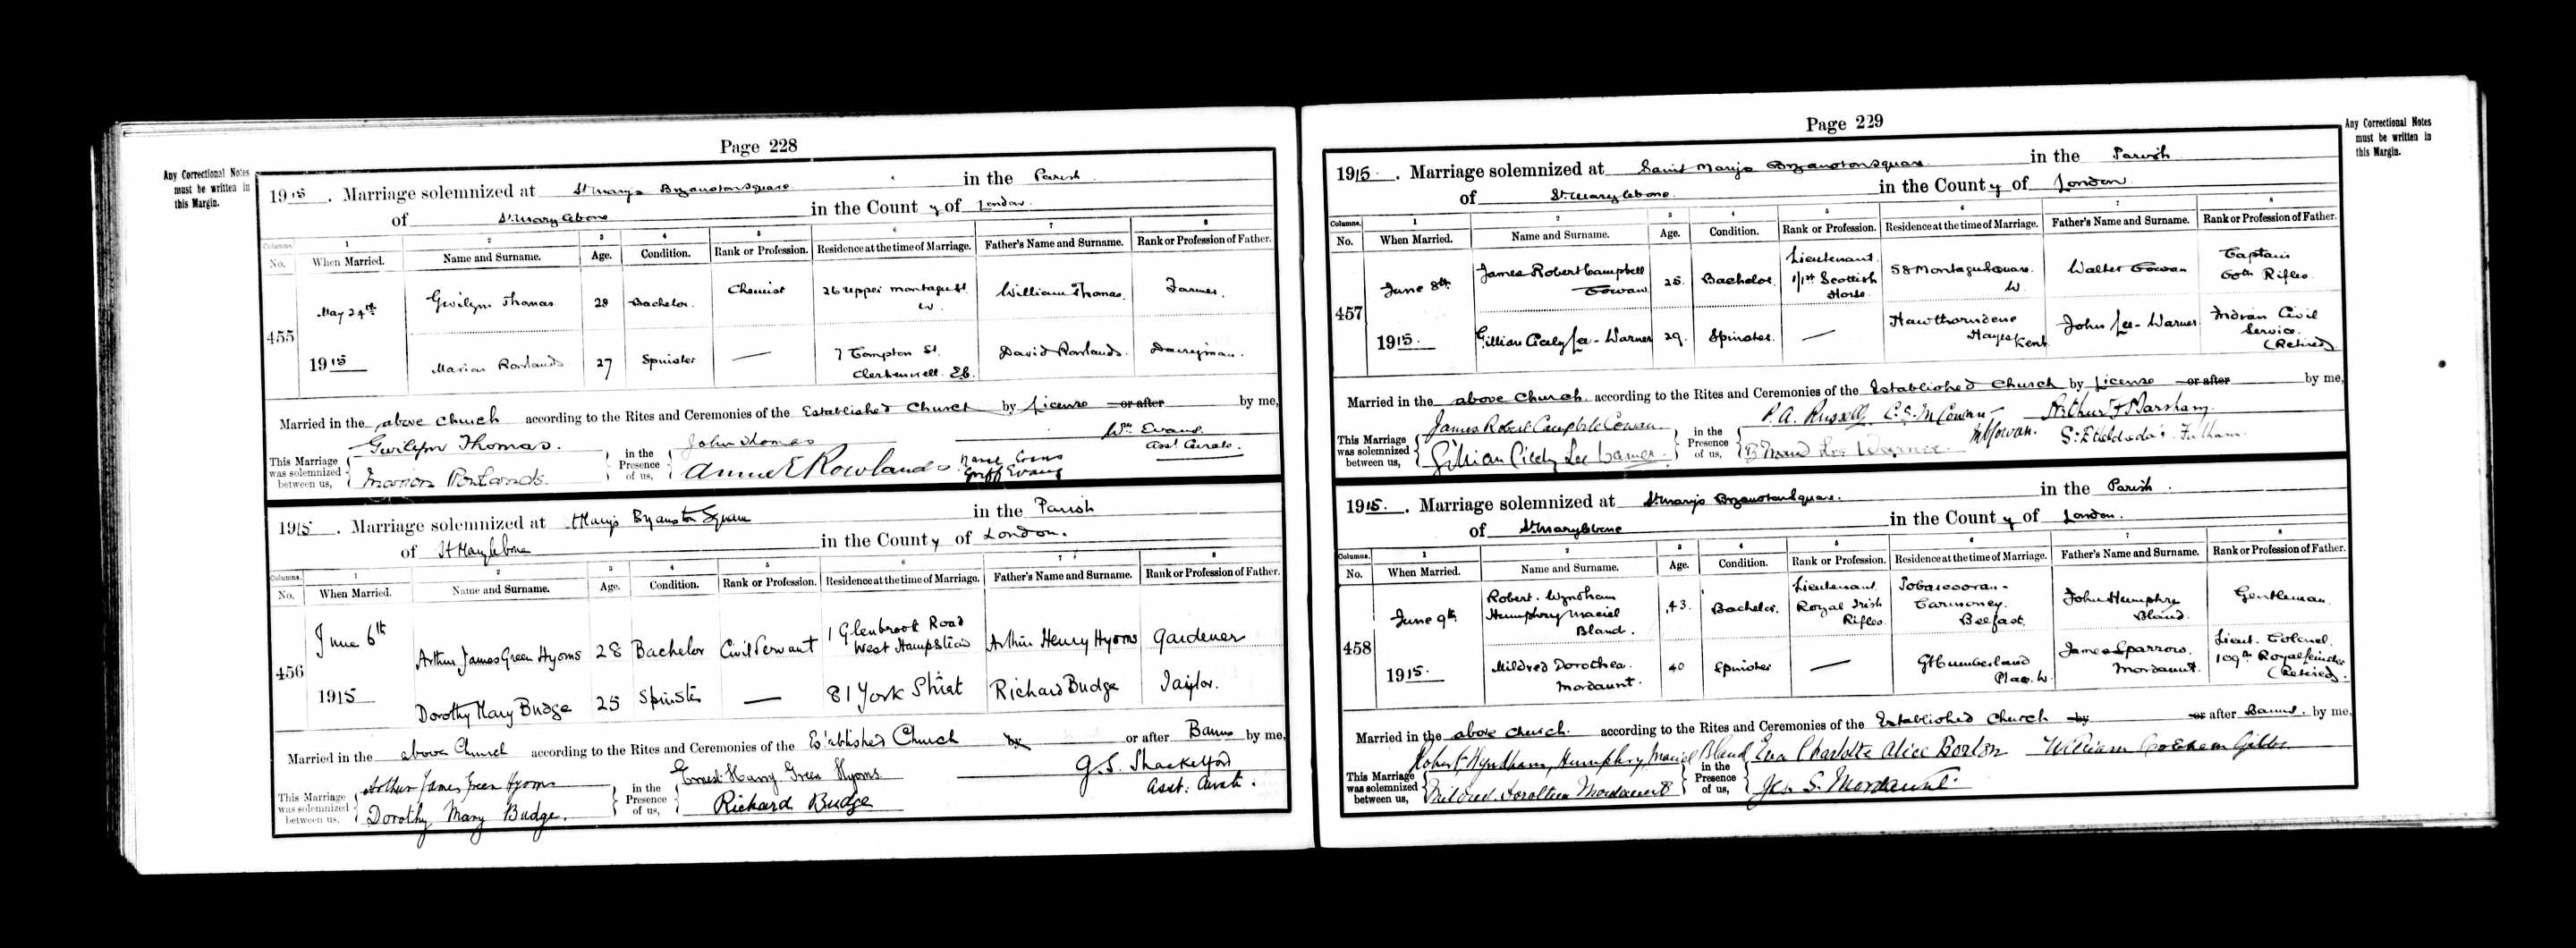 Page 228
Any Correctional Notes
must be written in
this Margin.
1915. Marriage solemnized at St Mary's Bryanston Square in the Parish
of St. Marylebone in the County of London.
Columns. 1 2 3 4 5 6 7 8
No. When Married. Name and Surname. Age. Condition. Rank or Profession. Residence at the time of Marriage. Father's Name and Surname. Rank or Profession of Father.
455 May 24th 1915 Gwilym Thomas 28 Bachelor. Chemist 26 Upper Montagu St. W. William Thomas. Farmer.
Marion Rowlands 27 Spinster — 7 Compton St. Clerkenwell. E.C. David Rowlands. Dairyman.
Married in the above church according to the Rites and Ceremonies of the Established Church by License or after by me,
Wm Evans.
Asst Curate.
This Marriage was solemnized between us, Gwilym Thomas. Marion Rowlands. in the Presence of us, John Thomas Annie E Rowlands Evans Griff Evans
1915. Marriage solemnized at St Mary's Bryanston Square in the Parish
of St Marylebone in the County of London.
Columns. 1 2 3 4 5 6 7 8
No. When Married. Name and Surname. Age. Condition. Rank or Profession. Residence at the time of Marriage. Father's Name and Surname. Rank or Profession of Father.
456 June 6th 1915 Arthur James Green Hyoms 28 Bachelor Civil Servant 1 Glenbrook Road West Hampstead Arthur Henry Hyoms Gardener
Dorothy Mary Budge 25 Spinster — 81 York Street Richard Budge Taylor.
Married in the above Church according to the Rites and Ceremonies of the Established Church by or after Banns by me,
G. S. Shackelford
Asst: Curate.
This Marriage was solemnized between us, Arthur James Green Hyoms Dorothy Mary Budge. in the Presence of us, Ernest Harry Green Hyoms. Richard Budge
Page 229
Any Correctional Notes
must be written in
this Margin.
1915. Marriage solemnized at Saint Mary's Bryanston Square in the Parish
of St. Marylebone. in the County of London.
Columns. 1 2 3 4 5 6 7 8
No. When Married. Name and Surname. Age. Condition. Rank or Profession. Residence at the time of Marriage. Father's Name and Surname. Rank or Profession of Father.
457 June 8th 1915. James Robert Campbell Cowan 25. Bachelor. Lieutenant. 1/1st Scottish Horse. 58 Montagu Square. W. Walter Cowan Captain 60th Rifles.
Gillian Cicely Lee-Warner 29. Spinster. — Hawthorndene Hayes Kent John Lee-Warner Indian Civil Service. (Retired)
Married in the above Church. according to the Rites and Ceremonies of the Established Church by License or after by me,
Arthur F Marsham.
St Etheldreda's Fulham.
This Marriage was solemnized between us, James Robert Campbell Cowan Gillian Cicely Lee Warner. in the Presence of us, P. A. Russell. C. S. M Cowan M Cowan. Maud Lee Warner.
1915. Marriage solemnized at St. Mary's Bryanston Square. in the Parish.
of St. Marylebone in the County of London.
Columns. 1 2 3 4 5 6 7 8
No. When Married. Name and Surname. Age. Condition. Rank or Profession. Residence at the time of Marriage. Father's Name and Surname. Rank or Profession of Father.
458 June 9th 1915. Robert. Wyndham Humphrey Maciel Bland. 43. Bachelor. Lieutenant. Royal Irish Rifles. Carnmoney. Belfast. John Humphrey Bland. Gentleman.
Mildred Dorothea. Mordaunt. 40 Spinster — Gt Cumberland Place. W. James Sparrow. Mordaunt. Lieut. Colonel. 109th Royal Leinster (Retired).
Married in the above church. according to the Rites and Ceremonies of the Established Church by or after Banns. by me,
William Gibbs.
This Marriage was solemnized between us, Robert, Wyndham, Humphrey, Maciel Bland Mildred. Dorothea Mordaunt in the Presence of us, Eva Charlotte Alice Borton Jas. S. Mordaunt.